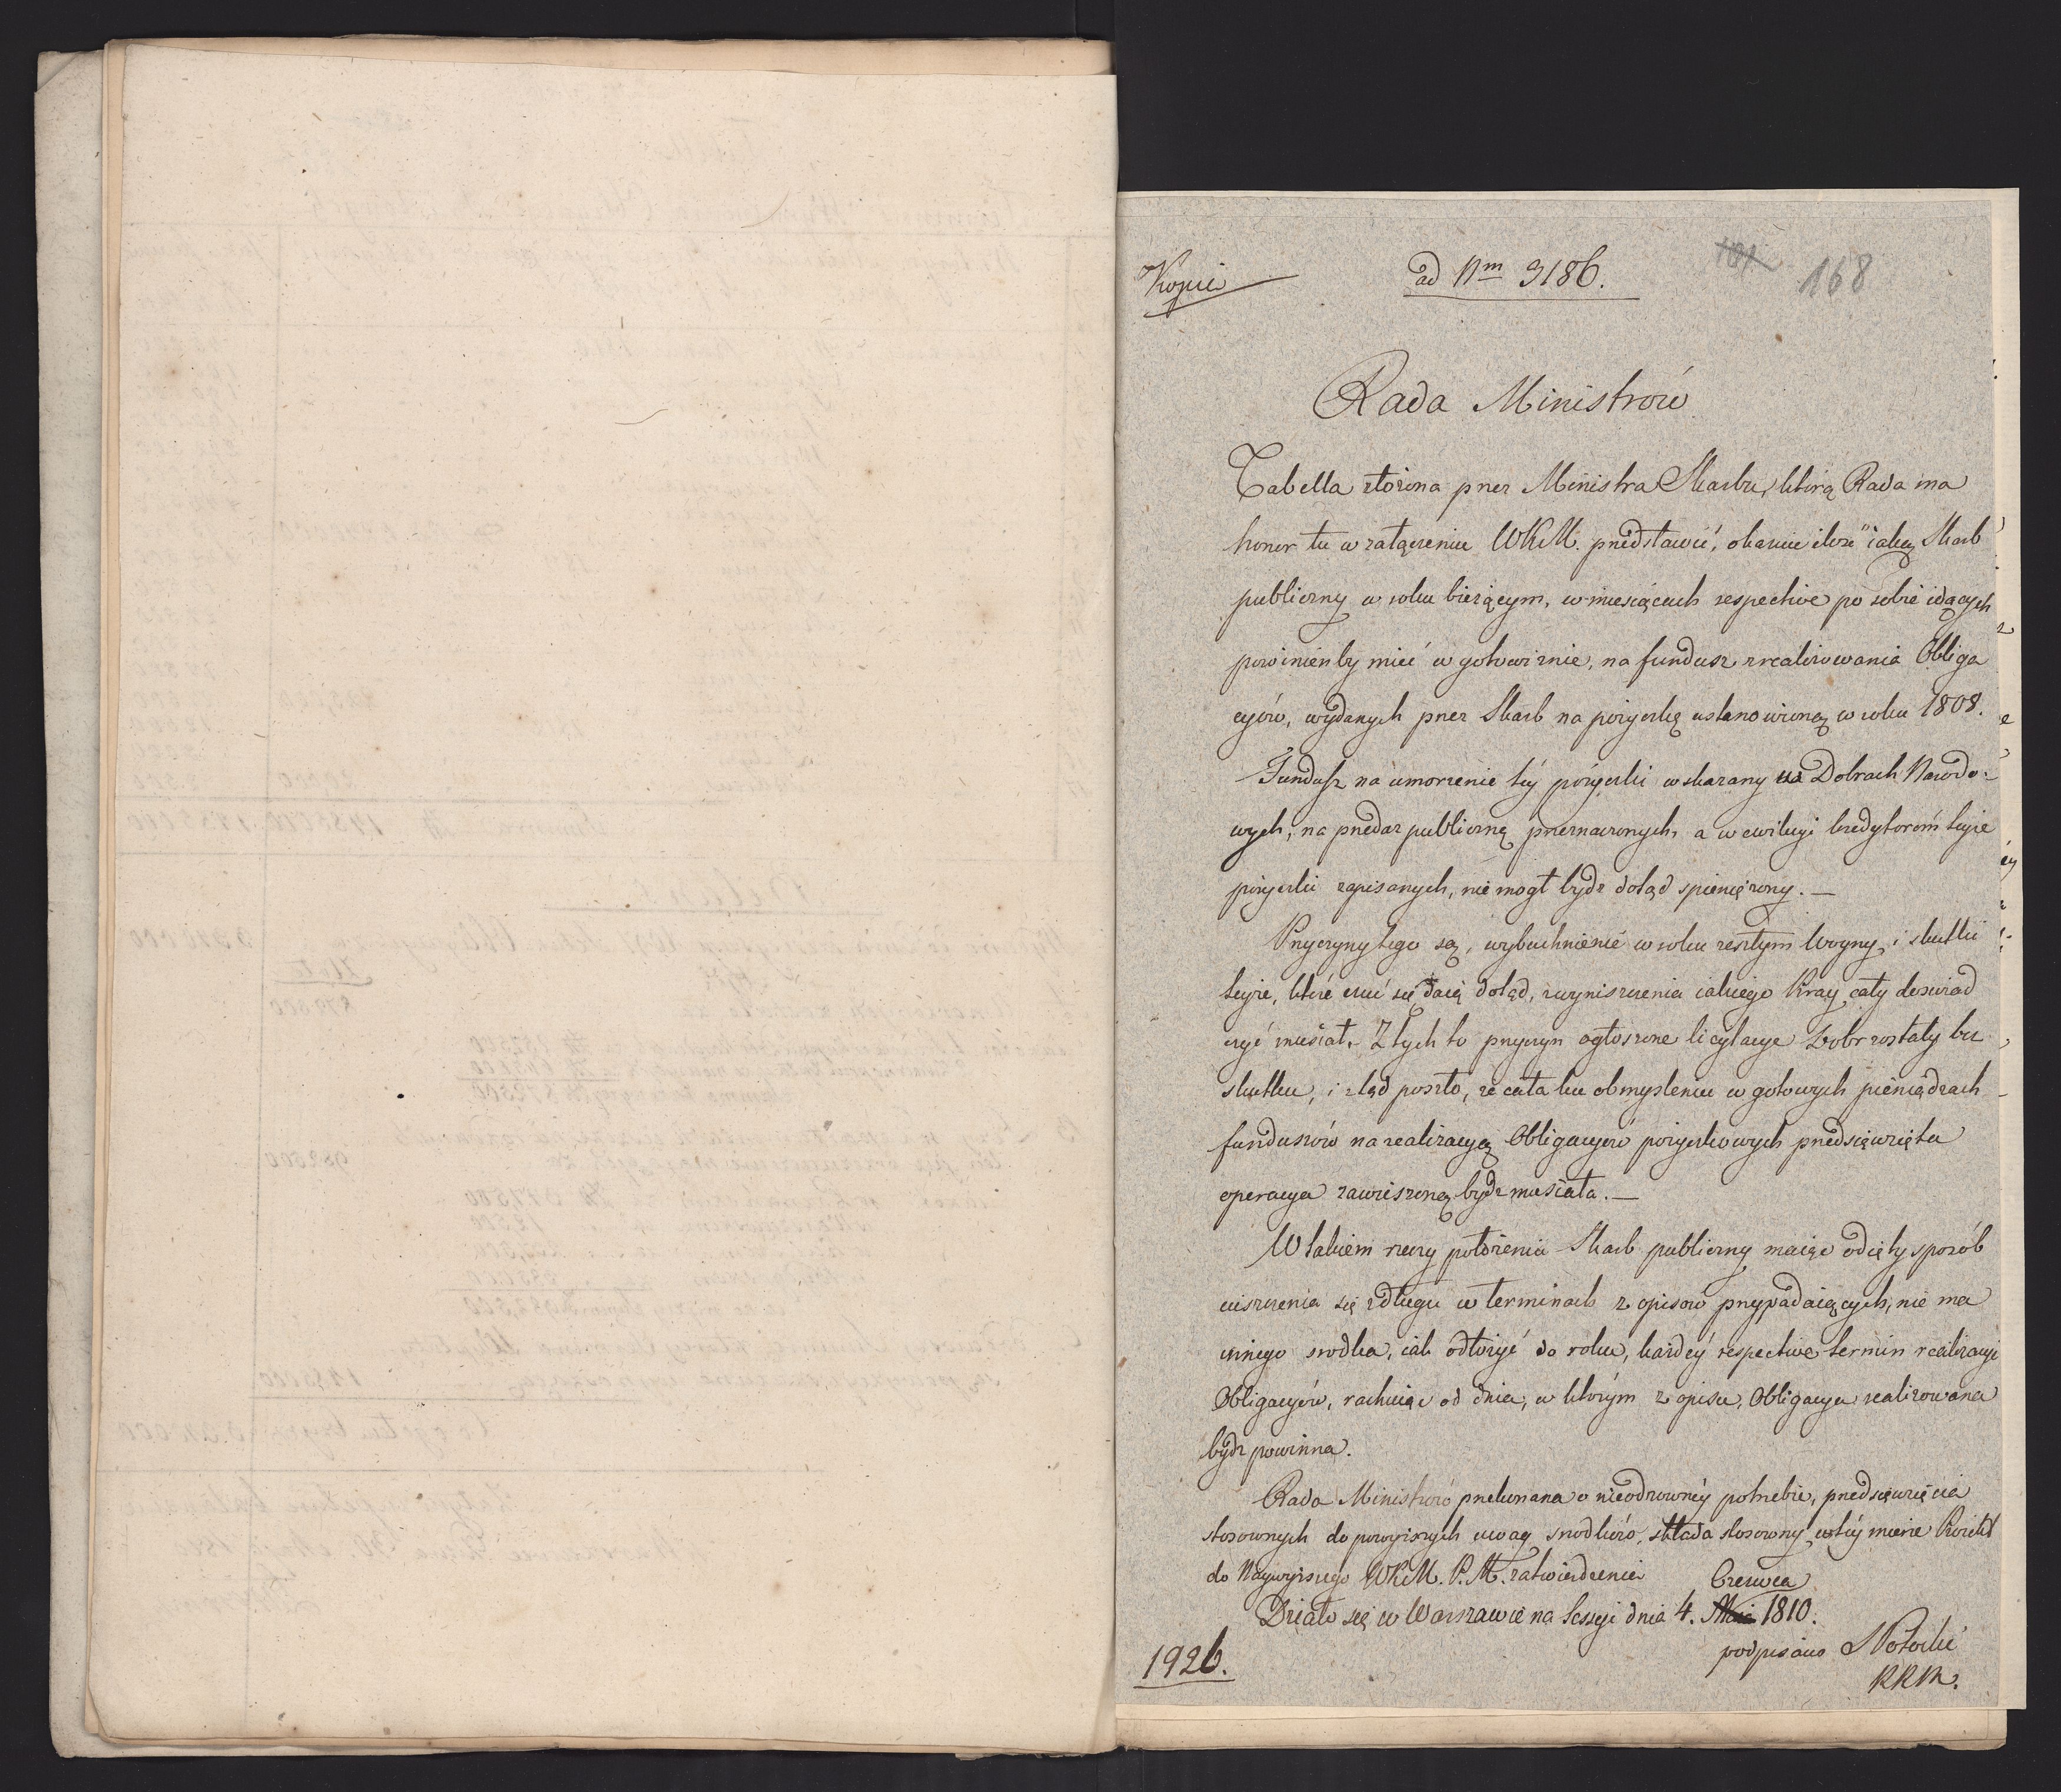 Kopia
ad Nm 3186.
168
Rada Ministrów
Tabella złożona przez Ministra Skarbu, którą Rada ma
honor tu w załączeniu WKM. przedstawić, okazuie ilość iaką Skarb
publiczny w roku bieżącym, w miesiącach respective po sobie idących
powinienby mieć w gotowiznie, na fundusz zrealizowania Obliga
cyów, wydanych przez Skarb na pożyczkę ustanowioną w roku 1808.
Fundusz na umorzenie téy pożyczki wskazany na Dobrach Narodo-
wych, na przedaż publiczną przeznaczonych, a w ewikcyi kredytorom teyże
pożyczki zapisanych, nie mogł bydź dotąd spieniężony. —
Przyczyny tego są, wybuchnienie w roku zeszłym Woyny, i skutki
teyże, które czuć się daią dotąd, zwyniszczenia iakiego Kray cały doswiad
czyć musiał. Z tych to przyczyn ogłoszone licytacye Dobr zostały bez
skutku, i ztąd poszło, że cała ku obmysleniu w gotowych pieniądzach
funduszów na realizacyą Obligacyów pożyczkowych przedsięwzięta
operacya zawieszoną bydź musiała. —
W takiem rzeczy położeniu Skarb publiczny maiąc odięty sposób
uiszczenia się z długu w terminach z opisow przypadaiących, nie ma
innego srodka, iak odłożyć do roku, każdéy respective termin realizacyi
Obligacyów, rachuiąc od dnia, w którym z opisu, Obligacya realizowana
bydź powinna.
Rada Ministrów przekonana o nieodzownéy potrzebie, przedsięwzięcia
stosownych do powyższych uwag srodków, składa stosowny w téy mierze Proiekt
do Naywyższego WKM. P. M. zatwierdzenia
Czerwca
Działo się w Warszawie na Sessyi dnia 4. Maia 1810.
podpisano S Potocki
PRM.
1926.